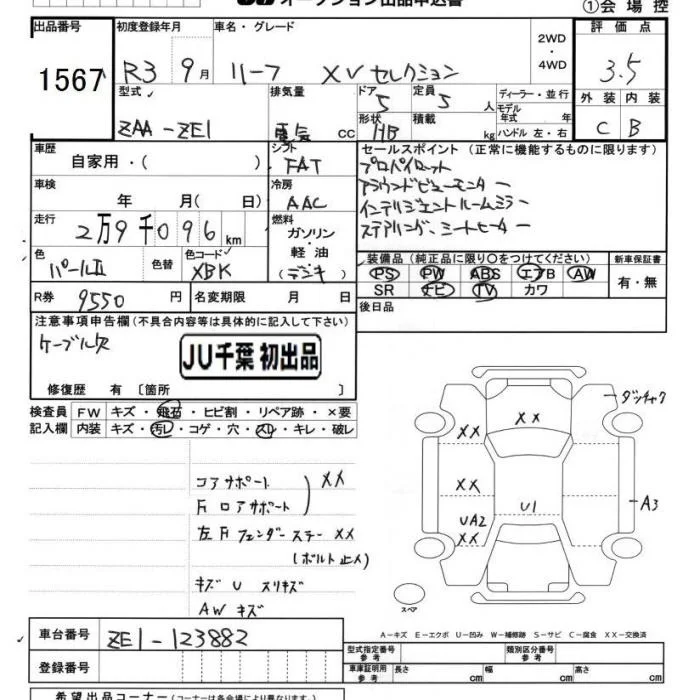 オークション出品申込書
①会場控
出品番号 初度登録年月 車名・グレード 2WD・4WD 評価点
1567 R3 9月 リーフ XVセレクション 3.5
型式 排気量 ドア 5 定員 5人 ディーラー・並行 外装 内装
モデル年式 年式
ZAA-ZE1 電気 CC 形状 HB 積載 kg ハンドル 左・右 C B
車歴 シフト セールスポイント (正常に機能するものに限ります)
自家用・( ) FAT プロパイロット
車検 冷房 アラウンドビューモニター
年 月( 日) AAC インテリジェントルームミラー
走行 燃料 ステアリング、シートヒーター
2万9千096km ガソリン・軽油
(デンキ)
色 色替 色コード 装備品 (純正品に限り○をつけてください) 新車保証書
パールII XBK PS PW ABS エアB AW 有・無
SR ナビ TV カワ
R券 9550円 名変期限 月 日 後日品
注意事項申告欄 (不具合内容等は具体的に記入して下さい)
ケーブル欠
JU千葉 初出品
修復歴 有 [箇所 ]
検査員 FW キズ・飛石・ヒビ割・リペア跡・×要
記入欄 内装 キズ・汚レ・コゲ・穴・スレ・キレ・破レ
ダッチャク
XX
XX
コアサポート XX
XX
F ロアサポート
U1
A3
左F フェンダーステー XX
UA2
XX
(ボルト止メ)
キズ U スリキズ
AW キズ
スペア
A-キズ E-エクボ U-凹み W-補修跡 S-サビ C-腐食 XX-交換済
車台番号 ZE1-123882
型式指定番号 参考 類別区分番号 参考
登録番号
車庫証明用 参考 長さ cm 幅 cm 高さ cm
希望出品コーナー (コーナー名は各会場により異なります)